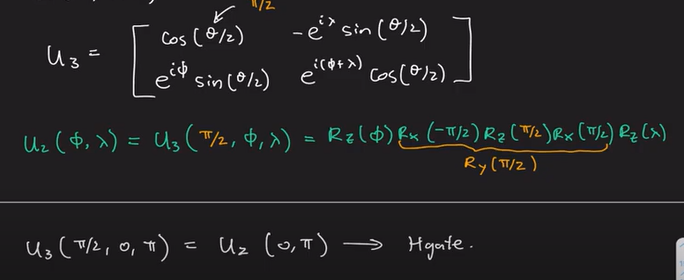 π/2
U₃ = [ cos(θ/2) -e^{iλ} sin(θ/2)
e^{iφ} sin(θ/2) e^{i(φ+λ)} cos(θ/2) ]
U₂(φ, λ) = U₃(π/2, φ, λ) = R_z(φ) R_x(-π/2) R_z(π/2) R_x(π/2) R_z(λ)
R_y(π/2)
U₃(π/2, 0, π) = U₂(0, π) → H gate.